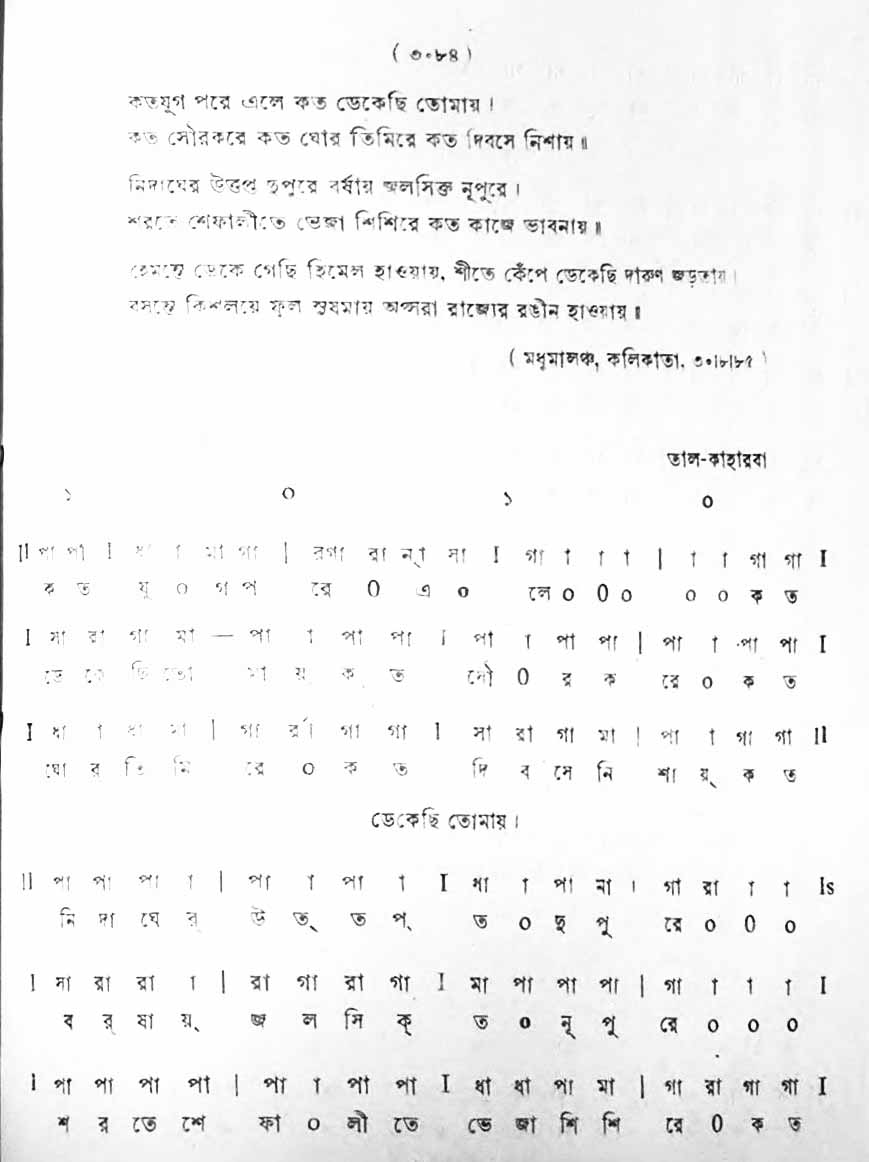 ( ৩০৮৪ )
কতযুগ পরে এলে কত ডেকেছি তোমায় ।
কত সৌরকরে কত ঘোর তিমিরে কত দিবসে নিশায় ॥
নিদাঘের উত্তপ্ত দুপুরে বর্ষায় জলসিক্ত নূপুরে ।
শরতে শেফালীতে ভেজা শিশিরে কত কাজে ভাবনায় ॥
হেমন্তে ডেকে গেছি হিমেল হাওয়ায়, শীতে কেঁপে ডেকেছি দারুণ জড়তায় ।
বসন্তে কিশলয়ে ফুল সুষমায় অপ্সরা রাজ্যের রঙীন হাওয়ায় ॥
( মধুমালঞ্চ, কলিকাতা, ৩০।৮।৮৫ )
তাল-কাহারবা
১ ০ ১ ০
II পা পা I ধা া মা গা | রগা রা ন্‌া সা I গা া া া | া া গা গা I
ক ত যু ০ গ প রে 0 এ ০ লে ০ 0 ০ ০ ০ ক ত
I সা রা গা মা — পা া পা পা I পা া পা পা | পা া পা পা I
ডে কে ছি তো মা য়্ ক ত সৌ 0 র ক রে ০ ক ত
I ধা া ধা মা | গা র্রা গা গা I সা রা গা মা | পা া গা গা II
ঘো র তি মি রে ০ ক ত দি ব সে নি শা য়্ ক ত
ডেকেছি তোমায় ।
II পা পা পা া | পা া পা া I ধা া পা মা । গা রা া া Is
নি দা ঘে র্ উ ত্ ত প্ ত ০ দু পু রে ০ 0 ০
I সা রা রা া | রা গা রা গা I মা পা পা পা | গা া া া I
ব র্ ষা য়্ জ ল সি ক্ ত ০ নূ পু রে ০ ০ ০
I পা পা পা পা | পা া পা পা I ধা ধা পা মা | গা রা গা গা I
শ র তে শে ফা ০ লী তে ভে জা শি শি রে 0 ক ত